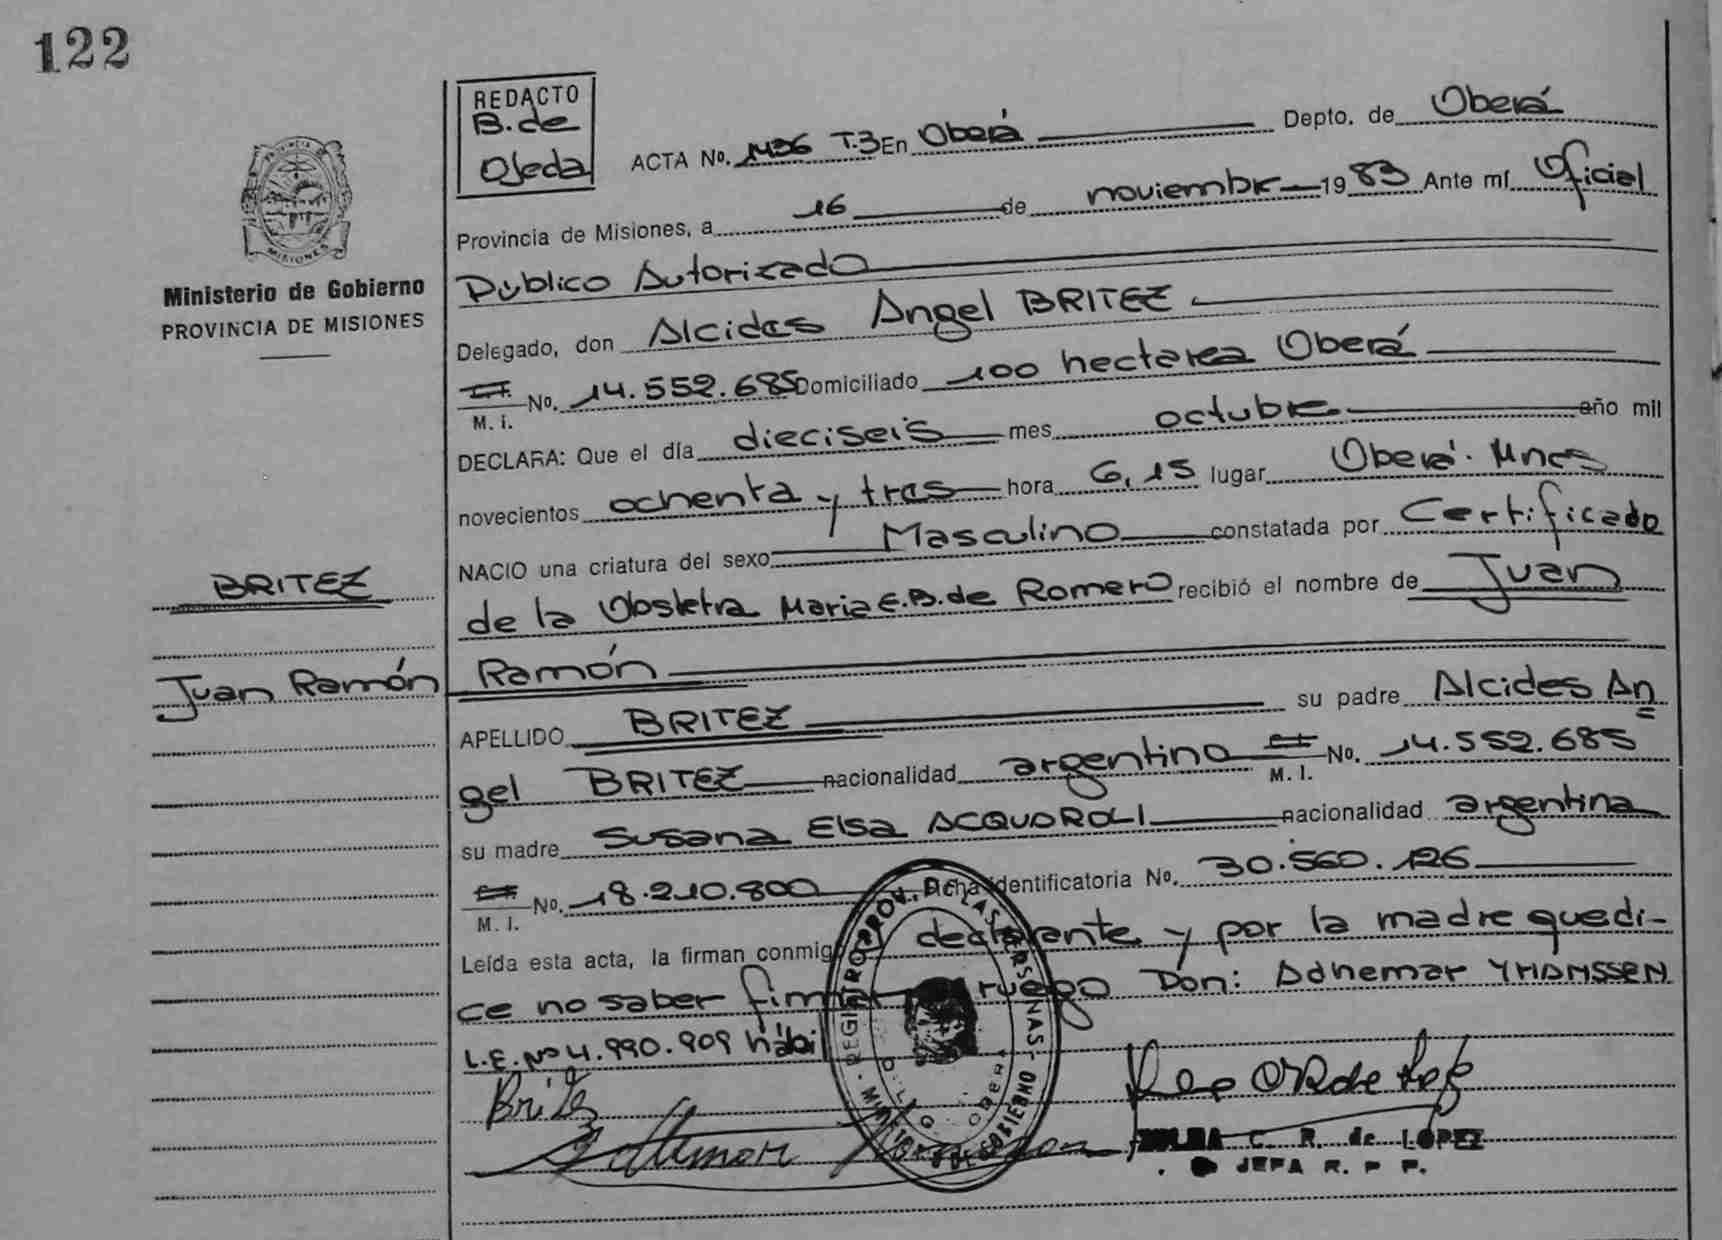 122
REDACTO
B. de
Ojeda
ACTA No. 1436 T.3 En Oberá Depto. de Oberá
Provincia de Misiones, a 16 de noviembre 1983 Ante mí Oficial
Público Autorizado
Delegado, don Alcides Angel BRITEZ
M. I. No. 14.552.685 Domiciliado 100 hectarea Oberá
DECLARA: Que el día dieciseis mes octubre año mil
novecientos ochenta y tres hora 6,15 lugar Oberá. Mnes
NACIO una criatura del sexo Masculino constatada por Certificado
de la Obstetra Maria E.B. de Romero recibió el nombre de Juan
Ramón
APELLIDO BRITEZ su padre Alcides An
gel BRITEZ nacionalidad argentino M. I. No. 14.552.685
su madre Susana Elsa ACQUAROLI nacionalidad argentina
M. I. No. 18.210.800 Ficha Identificatoria No. 30.560.126
Leída esta acta, la firman conmigo declarante y por la madre que di-
ce no saber firmar a ruego Don: Adhemar YHANSSEN
L.E. Nº 4.990.909 hábil
Britez
C. R. de LOPEZ
JEFA R. P P.
PROVINCIA DE
MISIONES
Ministerio de Gobierno
PROVINCIA DE MISIONES
BRITEZ
Juan Ramón
REGISTRO PROV. DE LAS PERSONAS - MINISTERIO DE GOBIERNO
OBERA